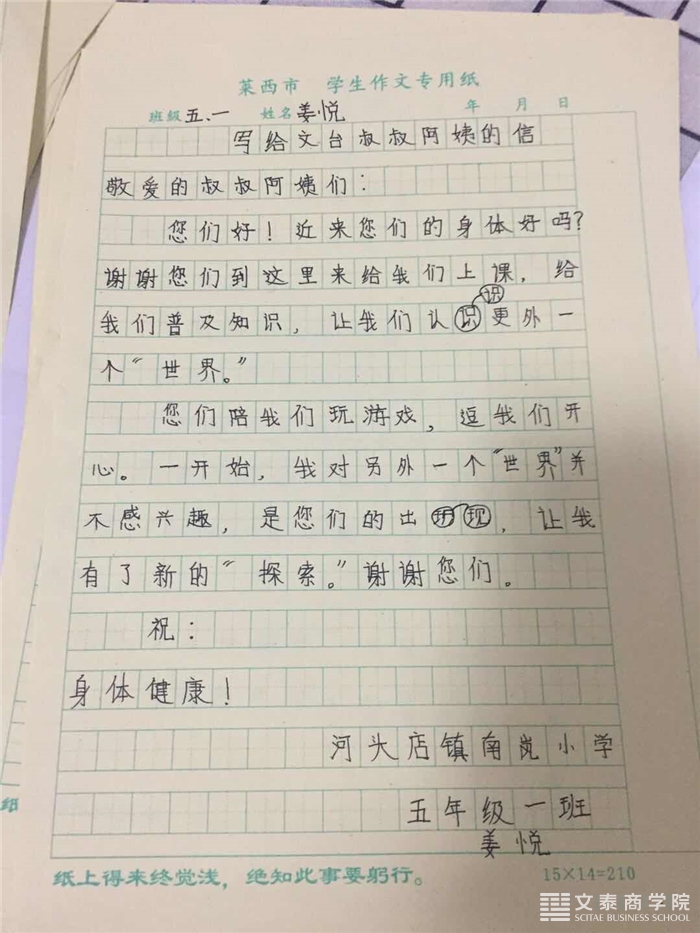 莱西市 学生作文专用纸
班级五.一 姓名姜悦 年 月 日
写给文台叔叔阿姨的信
敬爱的叔叔阿姨们:
您们好!近来您们的身体好吗?
谢谢您们到这里来给我们上课,给
我们普及知识,让我们认识更外一
个“世界。”
您们陪我们玩游戏,逗我们开
心。一开始,我对另外一个“世界”并
不感兴趣,是您们的出现,让我
有了新的“探索。”谢谢您们。
祝:
身体健康!
河头店镇南岚小学
五年级一班
姜悦
纸上得来终觉浅,绝知此事要躬行。 15×14=210
文泰商学院
SCITAE BUSINESS SCHOOL